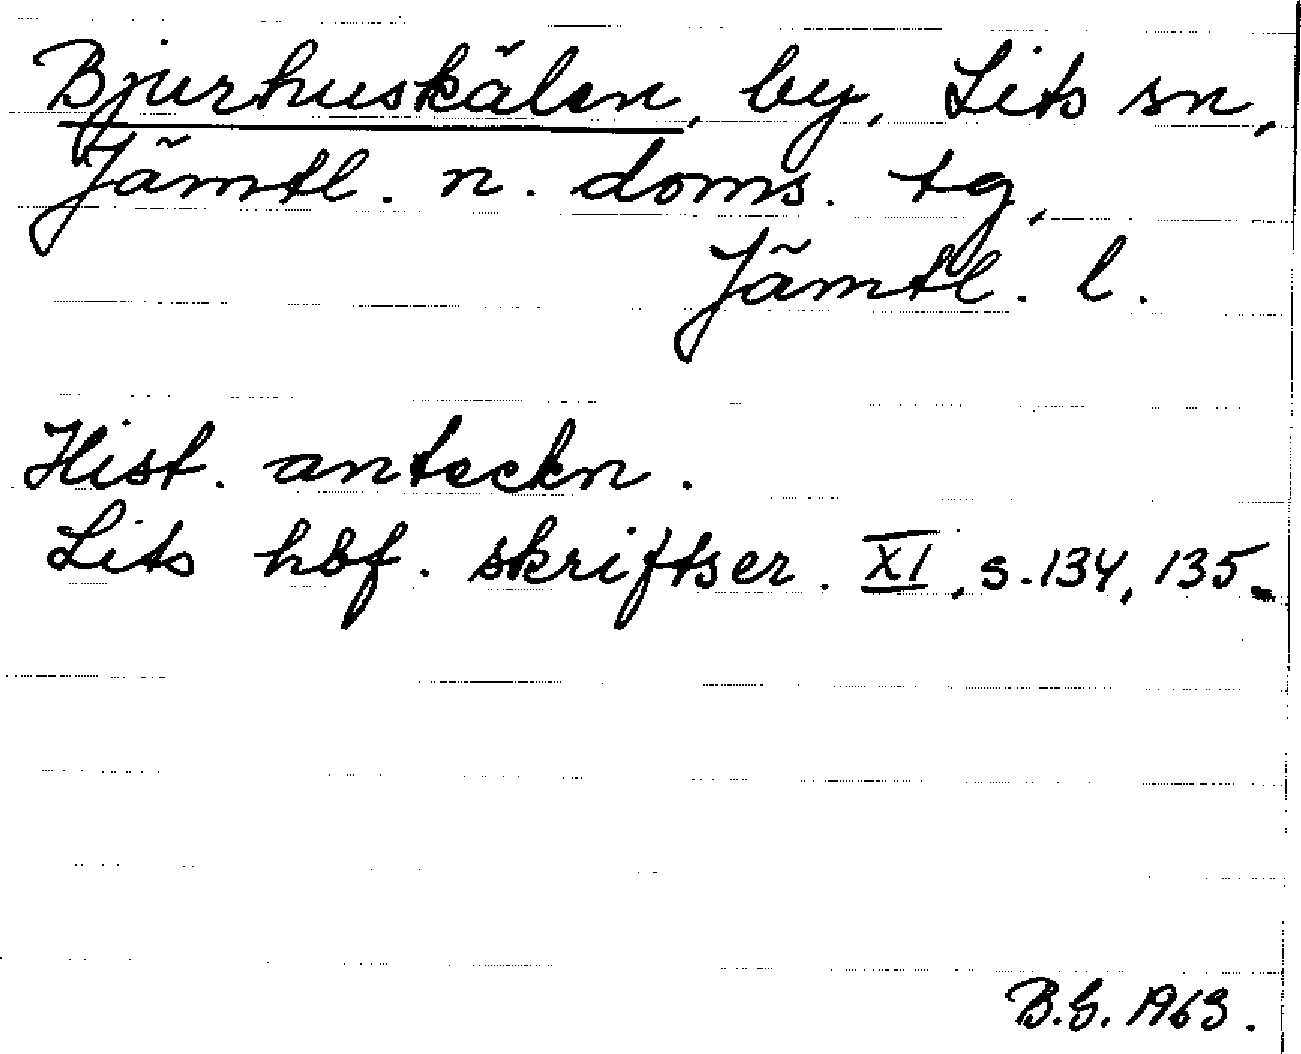 Bjurhuskälen, by, Lits sn,
Jämtl. n. doms. tg,
Jämtl. l.
Hist. anteckn.
Lits hbf. skriftser. XI, s. 134, 135.
B.G. 1963.